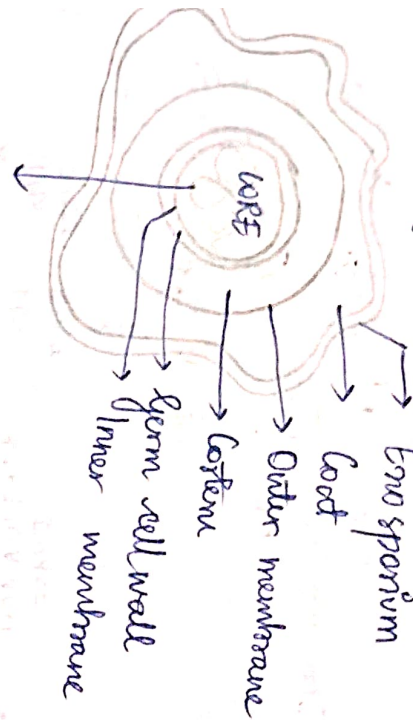 CORE
Exosporium
Coat
Outer membrane
Cortex
Germ cell wall
Inner membrane